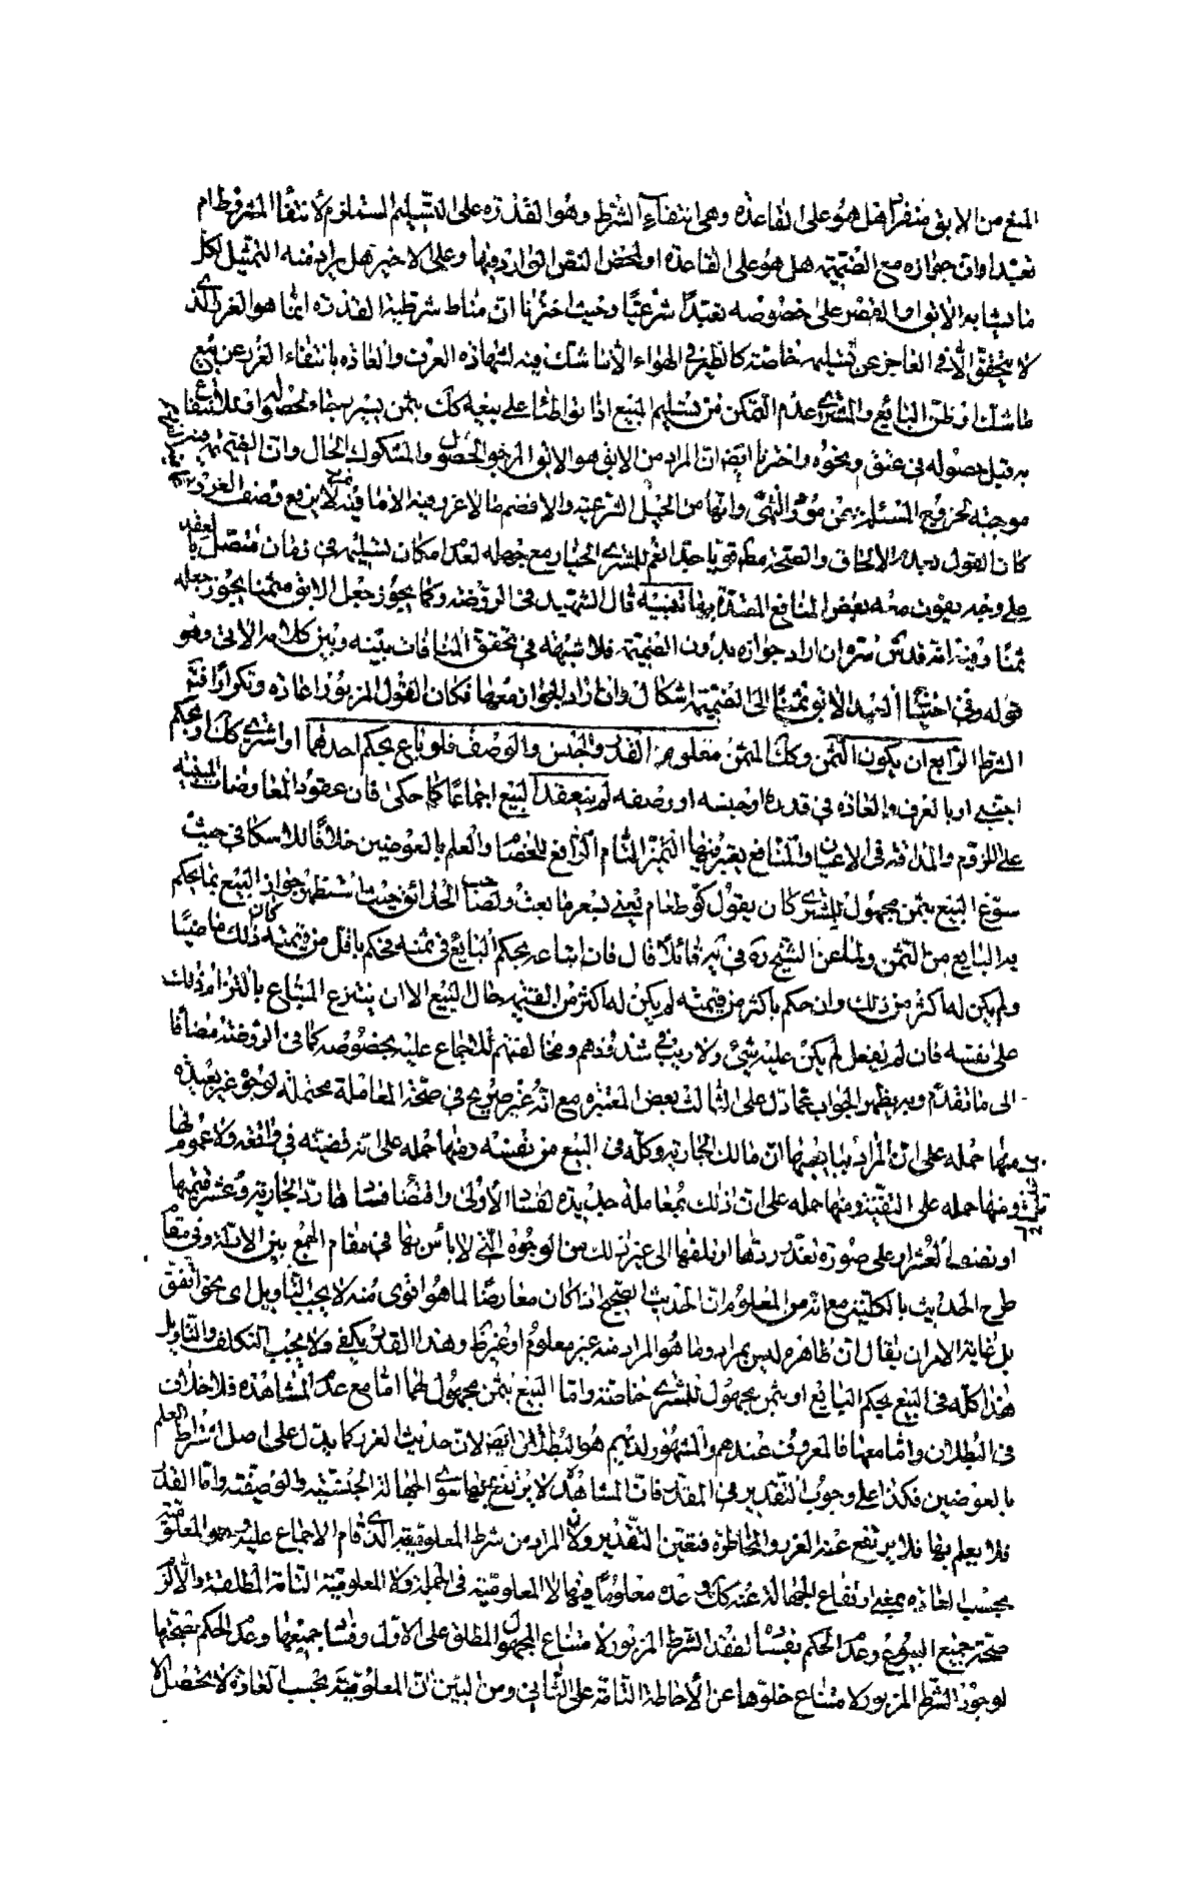 المنع من الابق منفردا هل هو على القاعدة وهى انتفاء الشرط وهو القدرة على التسليم المستلزم لانتفاء المشروط ام
تعبدا وان جوازه مع الضميمة هل هو على القاعدة او لمحض النص الوارد فيها وعلى الاخير هل يراد منه التمثيل لكل
ما يشابه الابق او القصر على خصوصه تعبدا شرعيا وحيث اخترنا ان مناط شرطية القدرة انما هو الغرر الذى
لا يتحقق الا فى العاجز عن تسليمه خاصة كالطير فى الهواء لا ما شك فيه لشهادة العرف والعادة بانتفاء الغرر عن بيع
ما شك او ظن البايع والمشترى عدم التمكن من تسليم المبيع اذا تواطئا على بيعه كك بثمن يسير رجاء لحصوله او للانتفاع
به قبل حصوله فى عتق ونحوه واخترنا ايضا ان المراد من الابق هو الابق المرجو الحصول والمشكوك الحال وان الضميمة
موجبة لخروج المسئلة عن مورد النهى وانها من الحيل الشرعية والا فضم ما لا غرر فيه الى ما فيه لا يرفع وصف الغرر
كان القول بعدم الالحاق والصحة مط قويا جدا نعم للمشترى الخيار مع جهله لعدم امكان تسليمه فى زمان متصل بالعقد
على وجه يفوت معه بعض المنافع المقصودة بها تنبيه قال الشهيد فى الروضة وكما يجوز جعل الابق مثمنا يجوز جعله
ثمنا وفيه انه قدس سره ان اراد جوازه بدون الضميمة فلا شبهة فى تحقق المنافات بينه وبين كلامه الاتى وهو
قوله وفى احتياج العبد الابق ثمنا الى الضميمة اشكال وان اراد الجواز معها فكان القول المزبور اعادة وتكرارا فتم
الشرط الرابع ان يكون الثمن وكك المثمن معلوم القدر والجنس والوصف فلو باع بحكم احدهما او اشترى كك او بحكم
اجنبى او بالعرف والعادة فى قدره او جنسه او وصفه لم ينعقد البيع اجماعا كما حكى فان عقود المعاوضات المبنية
على اللزوم والمداقة فى الاعيان والمنافع يعتبر فيها التميز التام الرافع للخصام والعلم بالعوضين خلافا للاسكافى حيث
سوغ البيع بثمن مجهول للمشترى كان يقول كر طعام بعنى بسعر ما بعت ولصاحب الحدائق حيث استظهر جواز البيع بما يحكم
به البايع من الثمن ولما عن الشيخ ره فى يه قائلا قال فان ابتاعه بحكم البايع فى ثمنه فحكم باقل من قيمته كان ذلك ماضيا
ولم يكن له اكثر من ذلك وان حكم باكثر من قيمته لم يكن له اكثر من القيمة حال البيع الا ان يتبرع المبتاع بالتزام ذلك
على نفسه فان لم يفعل لم يكن عليه شىء ولا ريب فى شذوذهم ومخالفتهم للاجماع عليه بخصوصه كما فى الروضة مضافا
الى ما تقدم وبه يظهر الجواب عما دل على الثالث بعض المعتبره مع انه غير صريح فى صحة المعاملة محتمله لوجوه غير بعيدة
منها حمله على ان المراد ببايعها ان مالك الجارية وكله فى البيع من نفسه ومنها حمله على انه قضيته فى واقعة ولا عموم لها
ومنها حمله على التقية ومنها حمله على ان ذلك بمعاملة جديدة لفساد الاولى واقتضاء فسادها رد الجارية وعشر قيمتها
او نصف العشر او على صورة تعذر ردها او تلفها الى غير ذلك من الوجوه التى لا باس بها فى مقام الجمع بين الادلة وفى مقام
طرح الحديث بالكلية مع انه من المعلوم ان الحديث الصحيح اذا كان معارضا لما هو اقوى منه لا يجب التاويل اى نحو اتفق
بل غاية الامر ان يقال ان ظاهره ليس بمراد وما هو المراد منه غير معلوم او غير ظ وهذا القدر يكفى ولا يجب التكلف والتاويل
هذا كله فى البيع بحكم البايع او بثمن مجهول للمشترى خاصة واما البيع بثمن مجهول لهما اما مع عدم المشاهدة فلا خلاف
فى البطلان واما معها فالمعروف عندهم والمشهور لديهم هو البطلان ايضا لان حديث الغرر كما يدل على اصل اشتراط العلم
بالعوضين فكذا على وجوب التقدير فى المقدر فان المشاهدة لا يرتفع بها سوى الجهالة الجنسية والوصفية واما القدر
فلا يعلم بها فلا يرتفع عنه الغرر والمخاطرة فتعين التقدير ولان المراد من شرط المعلومية الذى قام الاجماع عليه هو المعلومية
بحسب العادة بمعنى ارتفاع الجهالة عنه كك وعده معلوما فيها لا المعلومية فى الجملة ولا المعلومية التامة المطلقة والا لزم
صحة جميع البيوع وعدم الحكم بفساد لفقد الشرط المزبور لامتناع المجهول المطلق على الاول وفساد جميعها وعدم الحكم بصحتها
لوجود الشرط المزبور لامتناع خلوها عن الاحاطة التامة على الثانى ومن البين ان المعلومية بحسب العادة لا تحصل الا